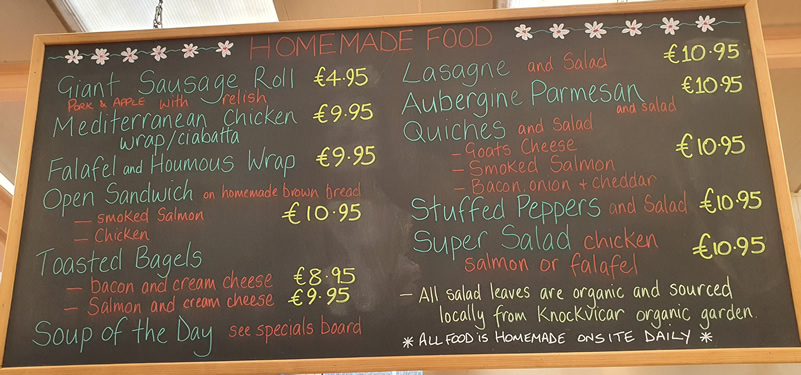 HOMEMADE FOOD
Giant Sausage Roll €4.95
PORK & APPLE with relish
Mediterranean Chicken €9.95
wrap/ciabatta
Falafel and Houmous Wrap €9.95
Open Sandwich on homemade brown bread
— smoked Salmon €10.95
— Chicken
Toasted Bagels
— bacon and cream cheese €8.95
— Salmon and cream cheese €9.95
Soup of the Day see specials board
Lasagne and Salad €10.95
Aubergine Parmesan €10.95
and salad
Quiches and Salad
— Goats Cheese €10.95
— Smoked Salmon
— Bacon, onion + cheddar
Stuffed Peppers and Salad €10.95
Super Salad chicken €10.95
salmon or falafel
— All salad leaves are organic and sourced
locally from Knockvicar organic garden.
* ALL FOOD IS HOMEMADE ONSITE DAILY *